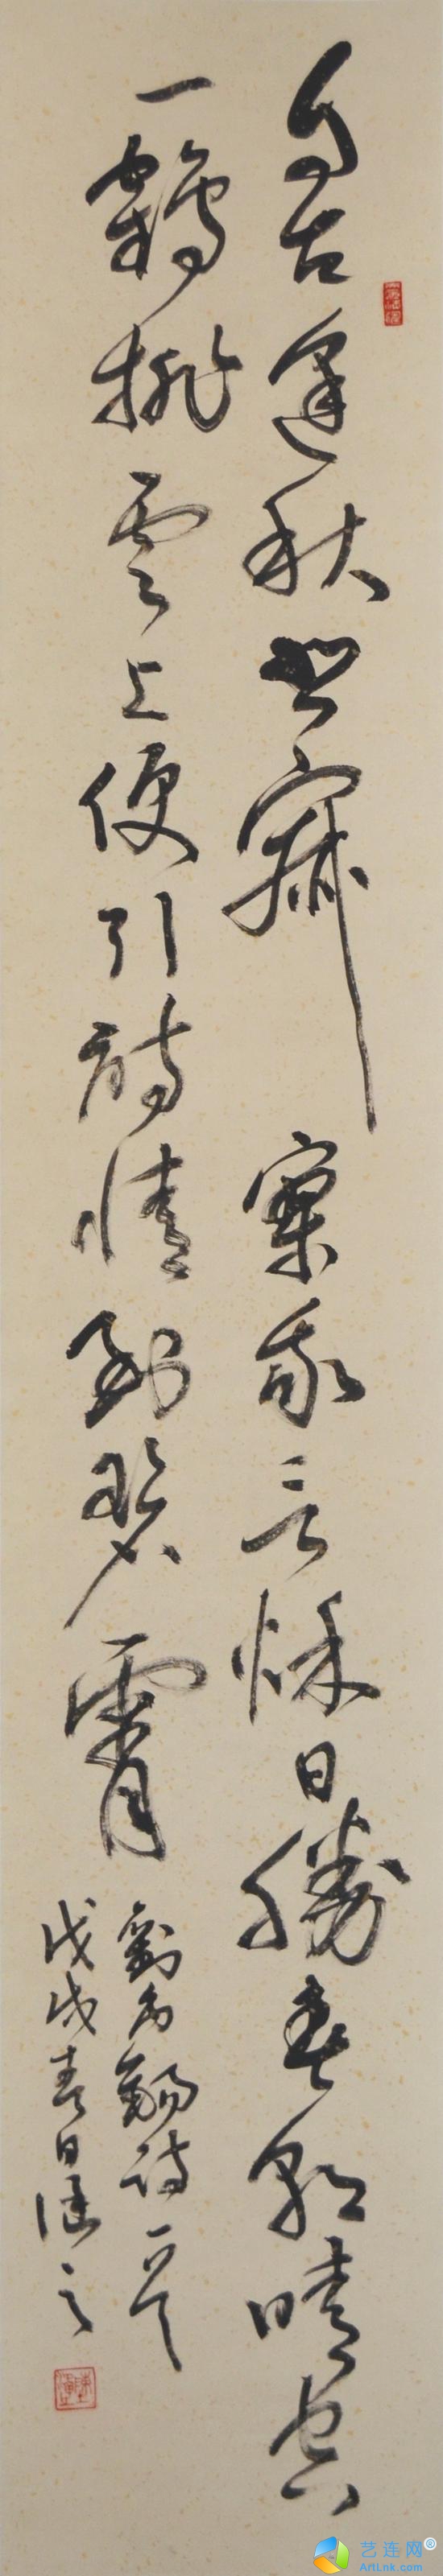 自古逢秋悲寂寥我言秋日勝春朝晴空
一鶴排雲上便引詩情到碧霄
劉禹錫詩一首
戊戌春日
艺连网®
ArtLnk.com